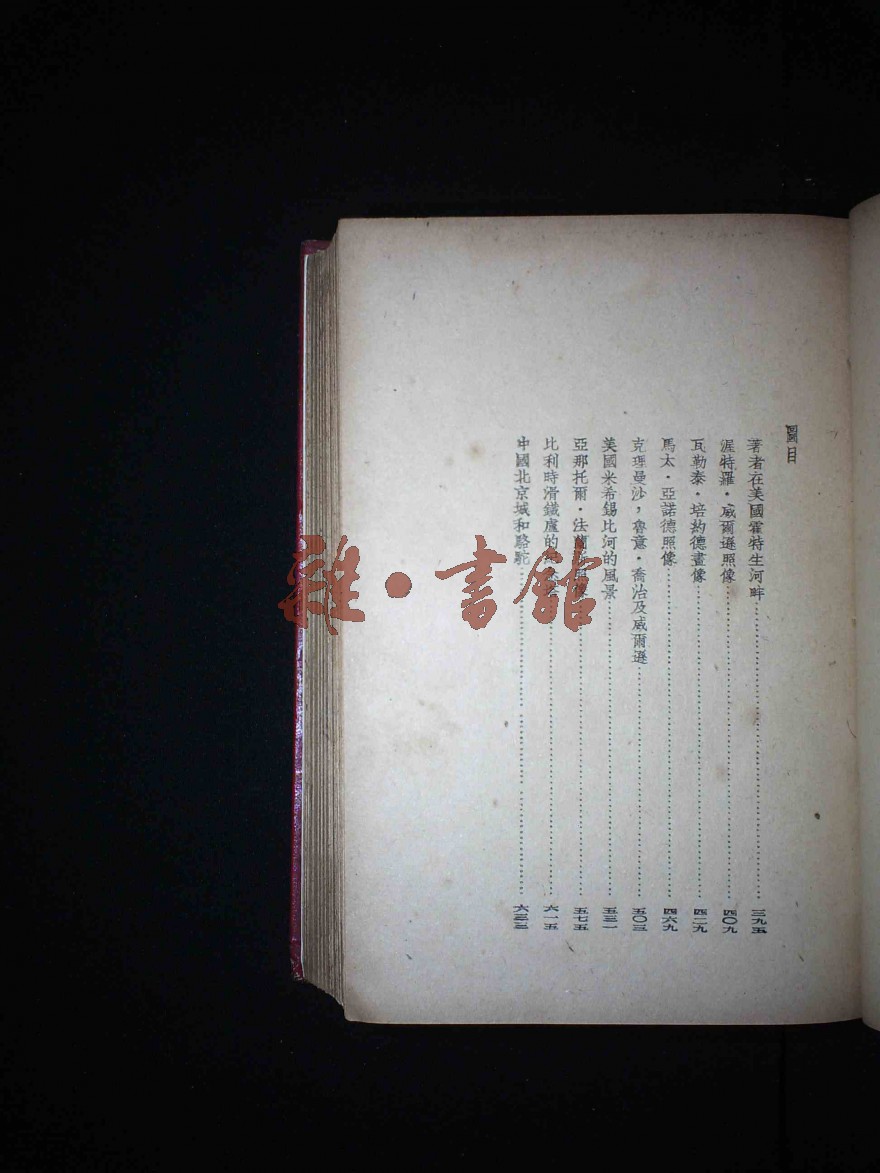 圖目
著者在美國霍特生河畔………三九五
渥特羅・威爾遜照像………四〇九
瓦勒泰・培約德畫像………四二九
馬太・亞諾德照像………四六九
克理曼沙，魯意・喬治及威爾遜………五〇三
美國米希錫比河的風景………五三一
亞那托爾・法蘭照像………五七五
比利時滑鐵盧的………六一五
中國北京城和駱駝………六三三
雜・書館